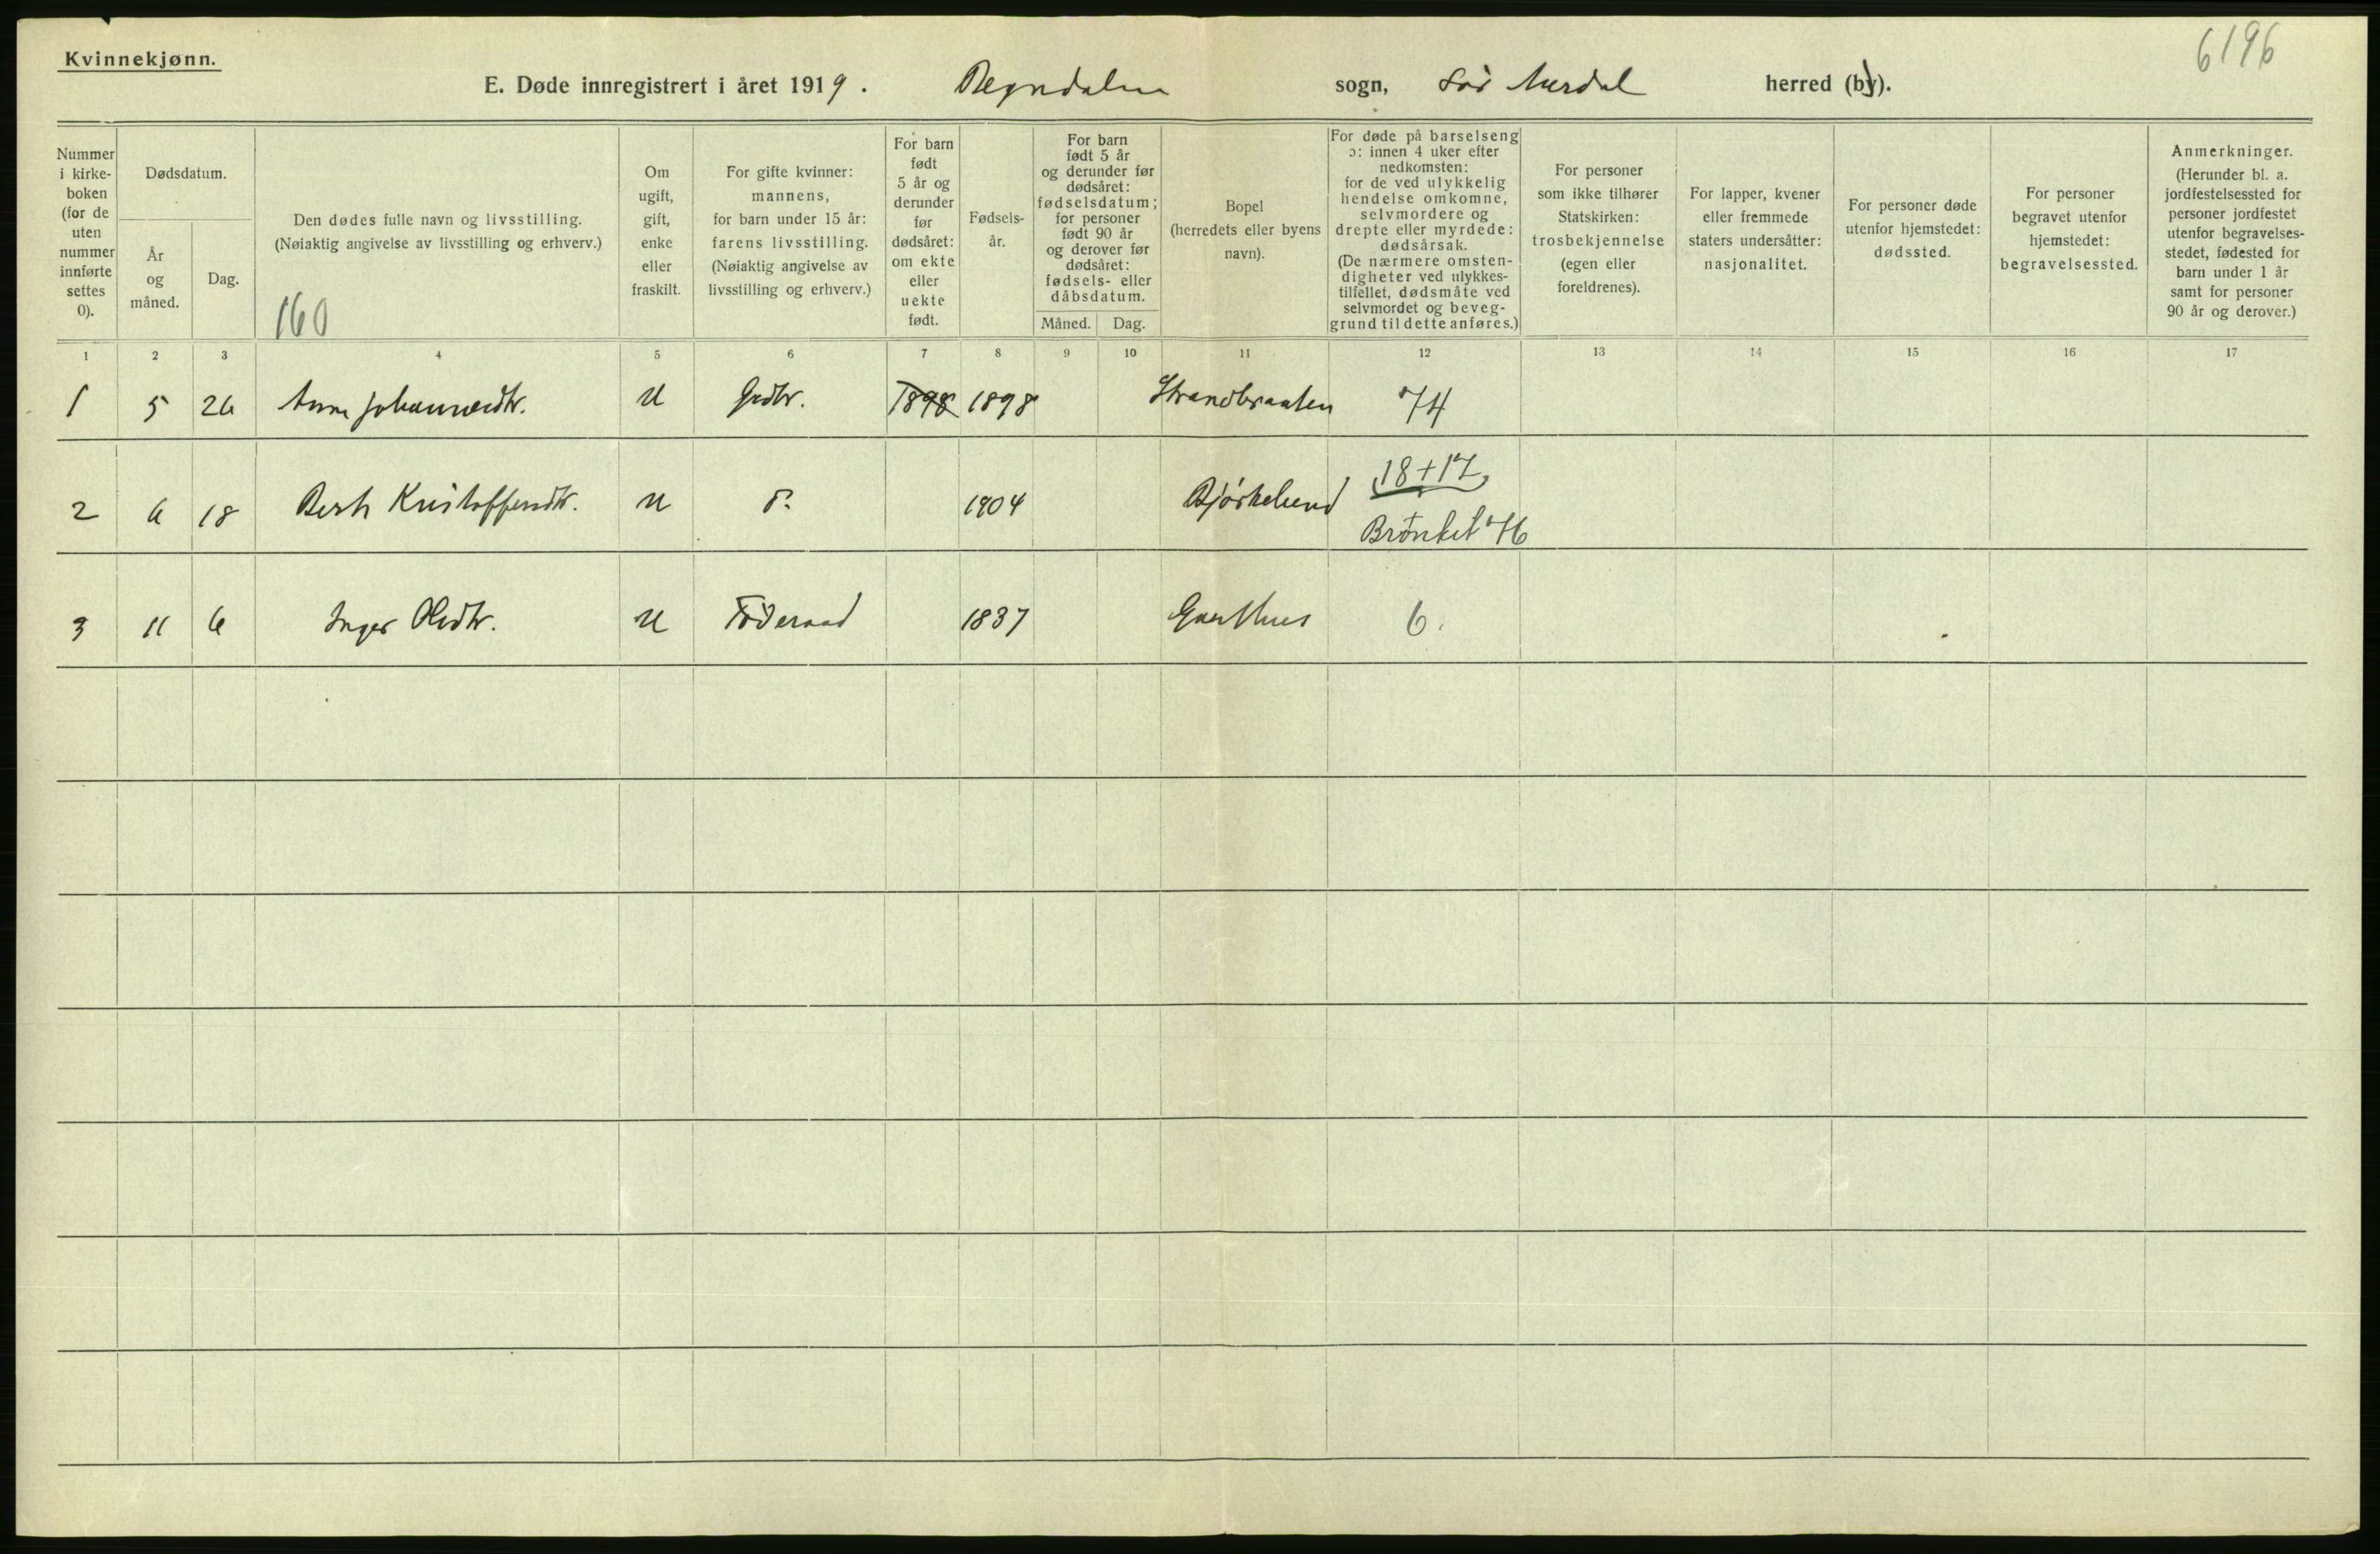 Kvinnekjønn.
6196
E. Døde innregistrert i året 1919. Begndalen sogn, Sør Aurdal herred (by).
Nummer i kirke- boken (for de uten nummer innførte settes 0).
Dødsdatum.
År og måned.
Dag.
Den dødes fulle navn og livsstilling.
(Nøiaktig angivelse av livsstilling og erhverv.)
160
Om ugift, gift, enke eller fraskilt.
For gifte kvinner: mannens, for barn under 15 år: farens livsstilling. (Nøiaktig angivelse av livsstilling og erhverv.)
For barn født 5 år og derunder før dødsåret: om ekte eller uekte født.
Fødsels- år.
For barn født 5 år og derunder før dødsåret: fødselsdatum; for personer født 90 år og derover før dødsåret: fødsels- eller dåbsdatum.
Måned. Dag.
Bopel (herredets eller byens navn).
For døde på barselseng ɔ: innen 4 uker efter nedkomsten: for de ved ulykkelig hendelse omkomne, selvmordere og drepte eller myrdede: dødsårsak. (De nærmere omsten- digheter ved ulykkes- tilfellet, dødsmåte ved selvmordet og beveg- grund til dette anføres.)
For personer som ikke tilhører Statskirken: trosbekjennelse (egen eller foreldrenes).
For lapper, kvener eller fremmede staters undersåtter: nasjonalitet.
For personer døde utenfor hjemstedet: dødssted.
For personer begravet utenfor hjemstedet: begravelsessted.
Anmerkninger. (Herunder bl. a. jordfestelsessted for personer jordfestet utenfor begravelses- stedet, fødested for barn under 1 år samt for personer 90 år og derover.)
1 2 3 4 5 6 7 8 9 10 11 12 13 14 15 16 17
1 5 26 Anne Johannesdtr. U Grdbr. 1898 1898 Strandbraaten 74
2 6 18 Berth Kristoffersdtr. U 1904 Bjørkelund 18+17
Brønket 46
3 11 6 Inger Olsdtr. U Föderaad 1837 Garthus 6.